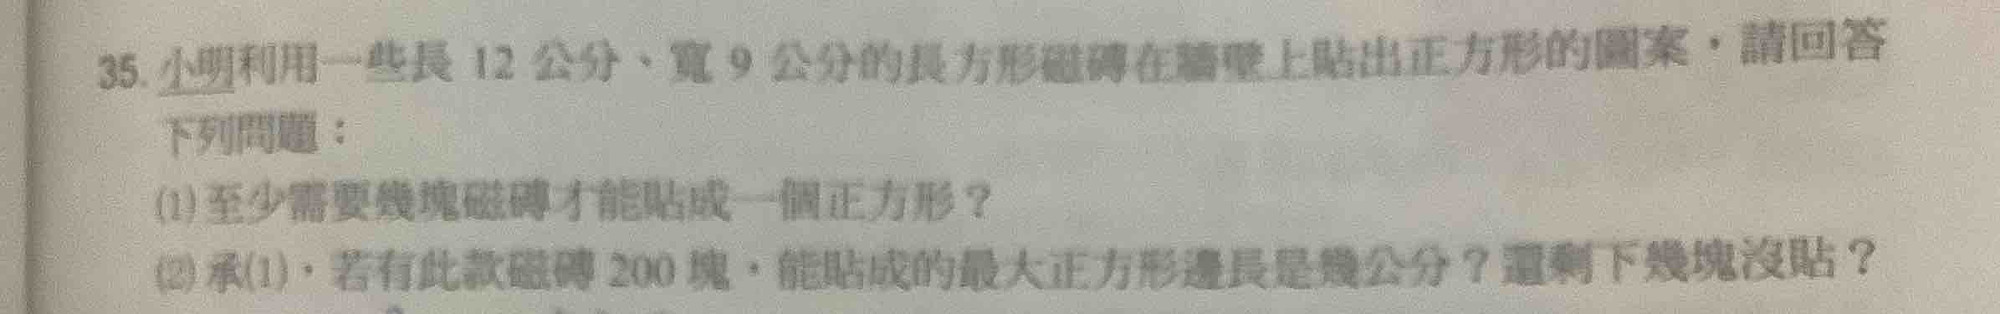 35. 小明利用一些長 12 公分、寬 9 公分的長方形磁磚在牆壁上貼出正方形的圖案，請回答
下列問題：
(1) 至少需要幾塊磁磚才能貼成一個正方形？
(2) 承(1)，若有此款磁磚 200 塊，能貼成的最大正方形邊長是幾公分？還剩下幾塊沒貼？